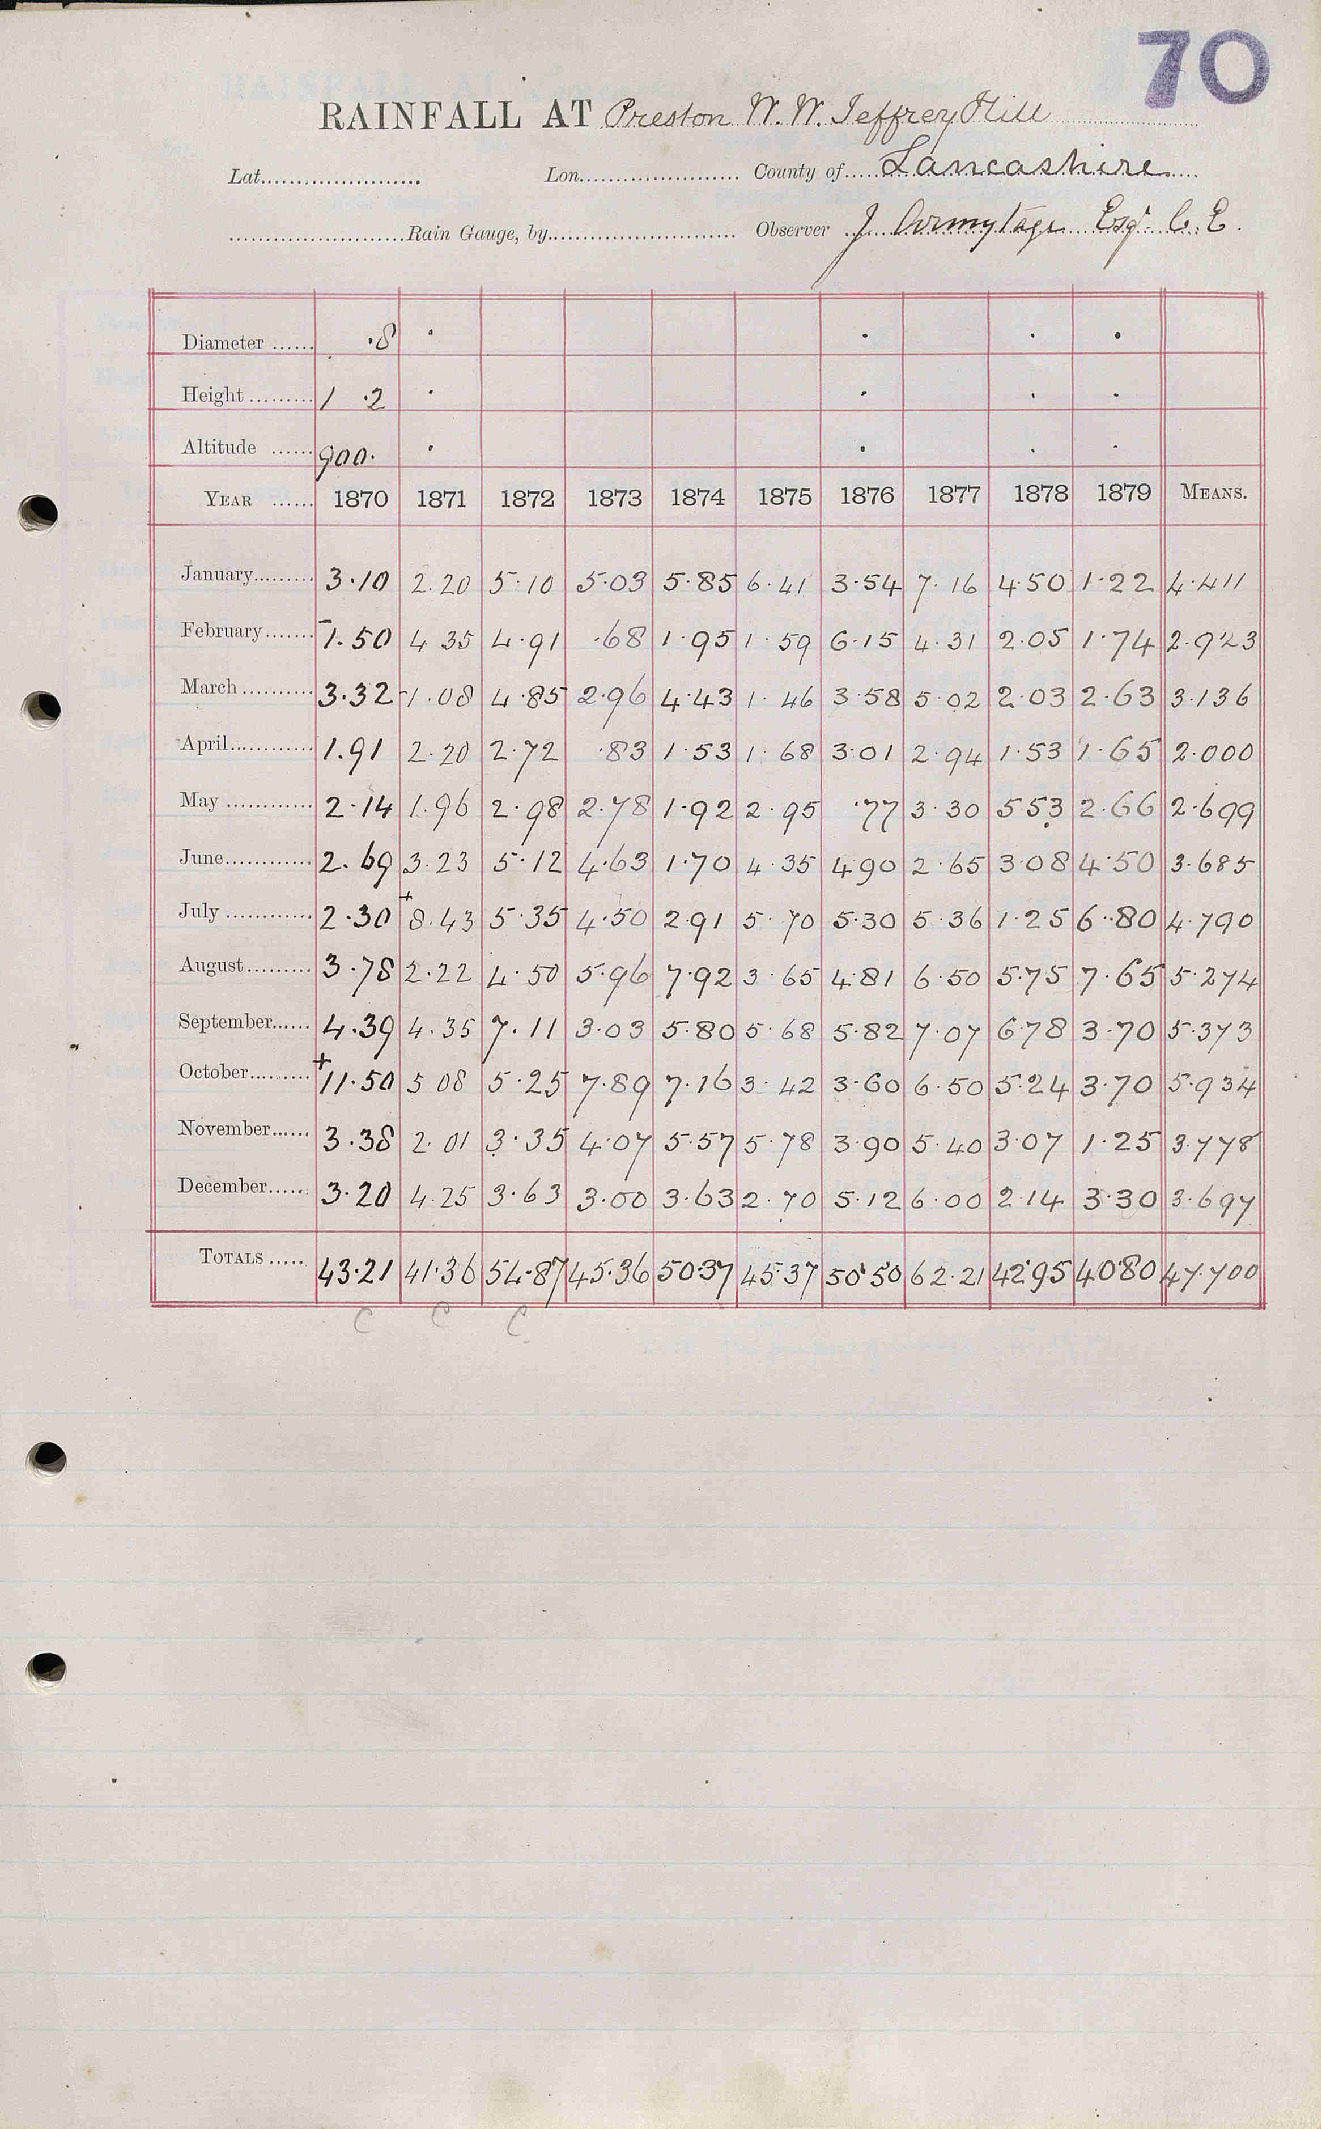 70
RAINFALL AT Preston W. W. Jeffrey Hill
Lat. Lon. County of Lancashire
Rain Gauge, by Observer J Armytage Esqr C. E.
Diameter ·8
Height 1 ·2
Altitude 900·
YEAR 1870 1871 1872 1873 1874 1875 1876 1877 1878 1879 MEANS.
January 3·10 2·20 5·10 5·03 5·85 6·41 3·54 7·16 4·50 1·22 4·411
February 1·50 4·35 4·91 ·68 1·95 1·59 6·15 4·31 2·05 1·74 2·923
March 3·32 1·08 4·85 2·96 4·43 1·46 3·58 5·02 2·03 2·63 3·136
April 1·91 2·20 2·72 ·83 1·53 1·68 3·01 2·94 1·53 1·65 2·000
May 2·14 1·96 2·98 2·78 1·92 2·95 ·77 3·30 5·53 2·66 2·699
June 2·69 3·23 5·12 4·63 1·70 4·35 4·90 2·65 3·08 4·50 3·685
July 2·30 + 8·43 5·35 4·50 2·91 5·70 5·30 5·36 1·25 6·80 4·790
August 3·78 2·22 4·50 5·96 7·92 3·65 4·81 6·50 5·75 7·65 5·274
September 4·39 4·35 7·11 3·03 5·80 5·68 5·82 7·07 6·78 3·70 5·373
October + 11·50 5·08 5·25 7·89 7·16 3·42 3·60 6·50 5·24 3·70 5·934
November 3·38 2·01 3·35 4·07 5·57 5·78 3·90 5·40 3·07 1·25 3·778
December 3·20 4·25 3·63 3·00 3·63 2·70 5·12 6·00 2·14 3·30 3·697
TOTALS 43·21 41·36 54·87 45·36 50·37 45·37 50·50 62·21 42·95 40·80 47·700
C C C